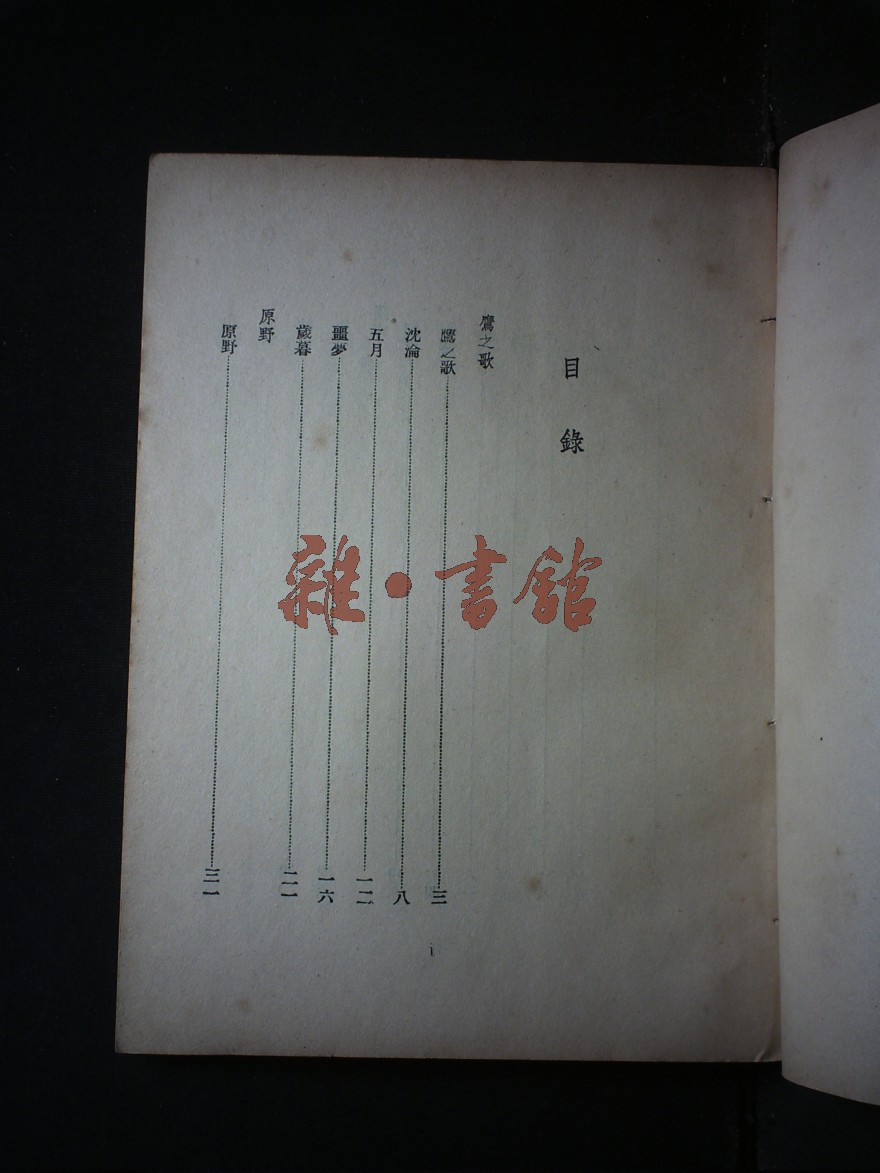 目錄
鷹之歌
鷹之歌 三
沈淪 八
五月 一二
噩夢 一六
歲暮 二一
原野
原野 三一
i
雜·書館